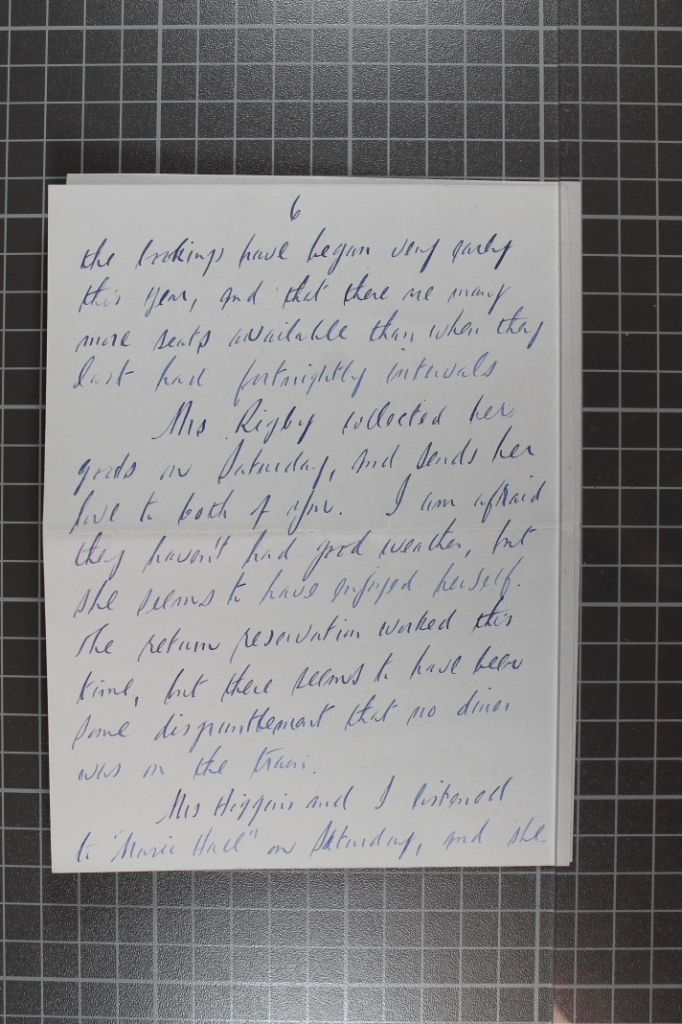 6
the bookings have began very early
this year, and that there are many
more seats available than when they
last had fortnightly intervals
Mrs Rigby collected her
goods on Saturday, and sends her
love to both of you. I am afraid
they haven't had good weather, but
she seems to have enjoyed herself.
The return reservation worked this
time, but there seems to have been
some disgruntlement that no diner
was on the train.
Mrs Higgins and I listened
to "Music Hall" on Saturday, and she